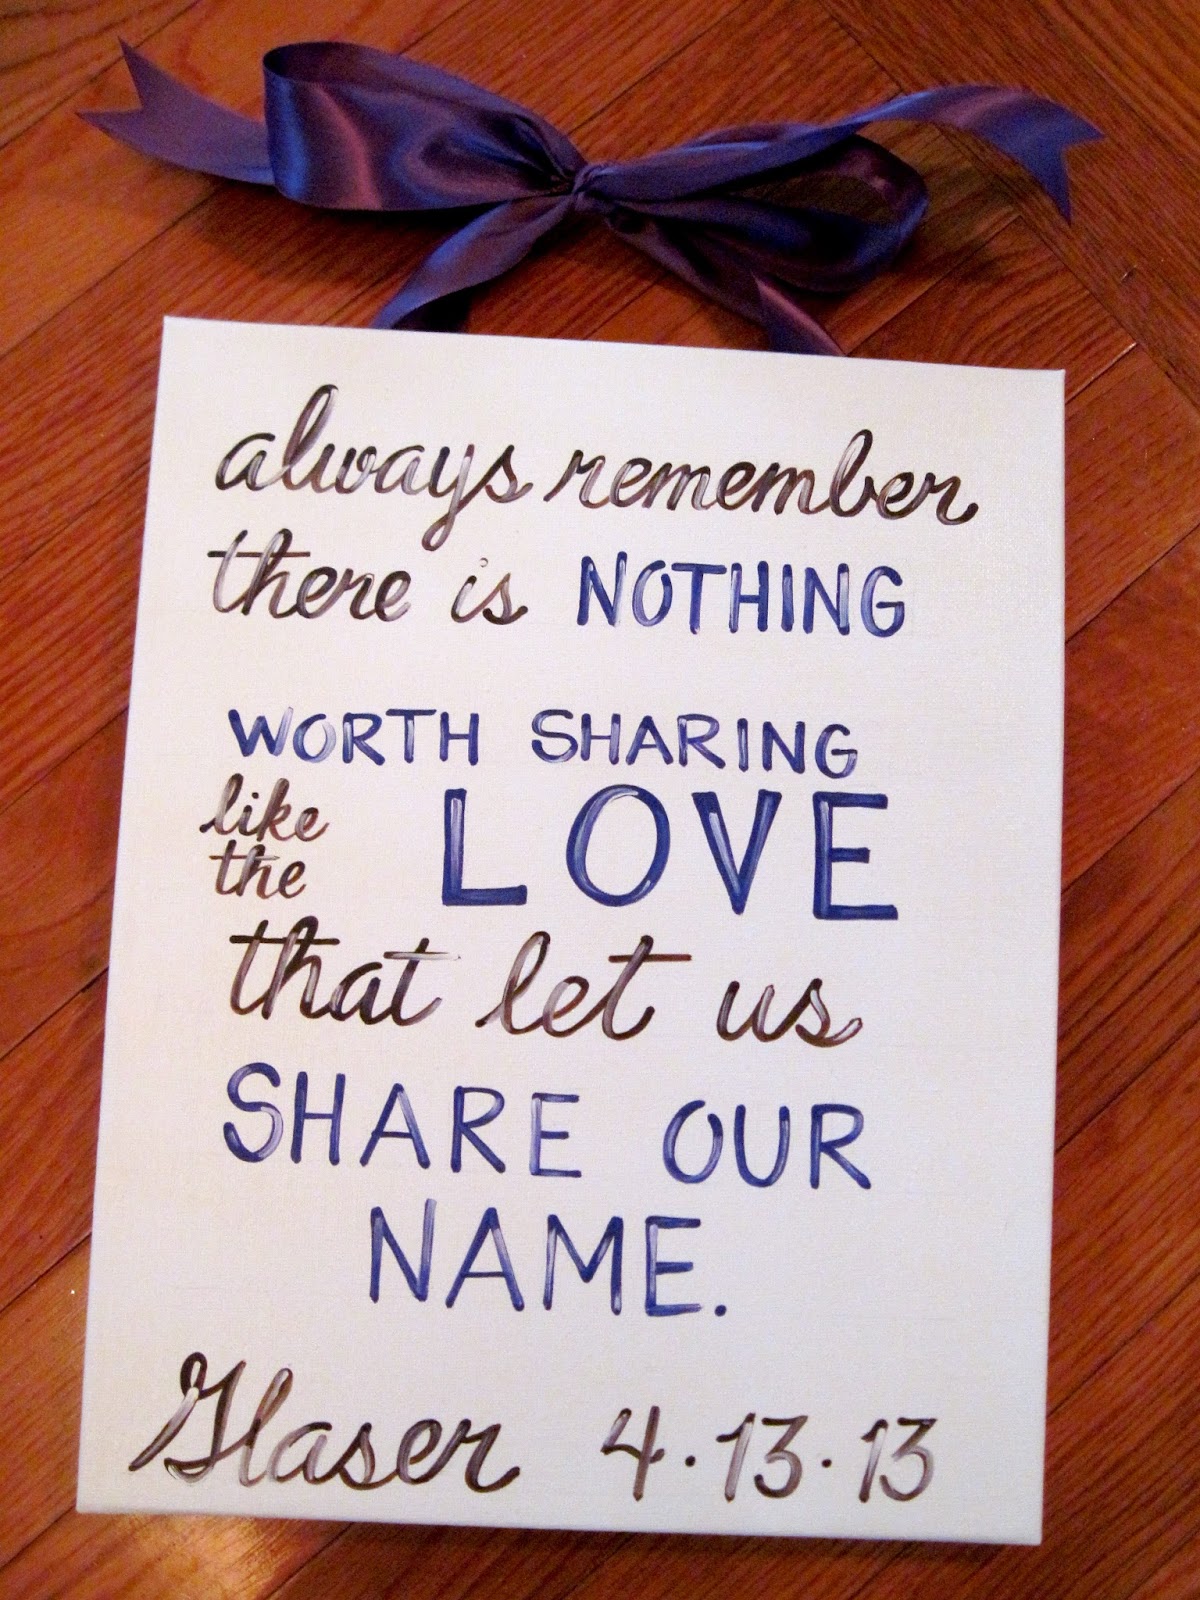 always remember
there is NOTHING
WORTH SHARING
like
the LOVE
that let us
SHARE OUR
NAME.
Glaser 4.13.13